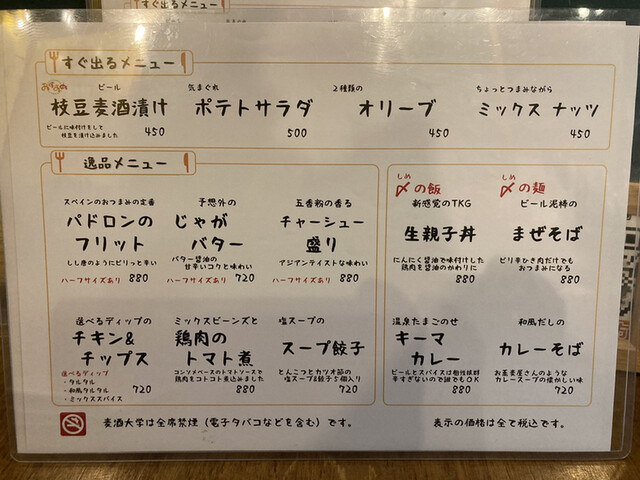 すぐ出るメニュー
すぐ出るメニュー
おすすめ
ビール
枝豆麦酒漬け
ビールに味付けをして
枝豆を漬け込みました
450
気まぐれ
ポテトサラダ
500
2種類の
オリーブ
450
ちょっとつまみながら
ミックス ナッツ
450
逸品メニュー
スペインのおつまみの定番
パドロンの
フリット
しし唐のようにピリっと辛い
ハーフサイズあり 880
予想外の
じゃが
バター
バター醤油の
甘辛いコクと味わい
ハーフサイズあり 720
五香粉の香る
チャーシュー
盛り
アジアンテイストな味わい
ハーフサイズあり 880
選べるディップの
チキン&
チップス
選べるディップ
・タルタル
・和風タルタル
・ミックススパイス
720
ミックスビーンズと
鶏肉の
トマト煮
コンソメベースのトマトソースで
鶏肉をコトコト煮込みました
880
塩スープの
スープ餃子
とんこつとカツオ節の
塩スープ&餃子5個入り
720
しめ
〆の飯
新感覚のTKG
生親子丼
にんにく醤油で味付けした
鶏肉を醤油のかわりに
880
しめ
〆の麺
ビール泥棒の
まぜそば
ピリ辛ひき肉だけでも
おつまみになる
880
温泉たまごのせ
キーマ
カレー
ビールとスパイスは相性抜群
辛すぎないので誰でもOK
880
和風だしの
カレーそば
お蕎麦屋さんのような
カレースープの懐かしい味
720
麦酒大学は全席禁煙（電子タバコなどを含む）です。
表示の価格は全て税込です。